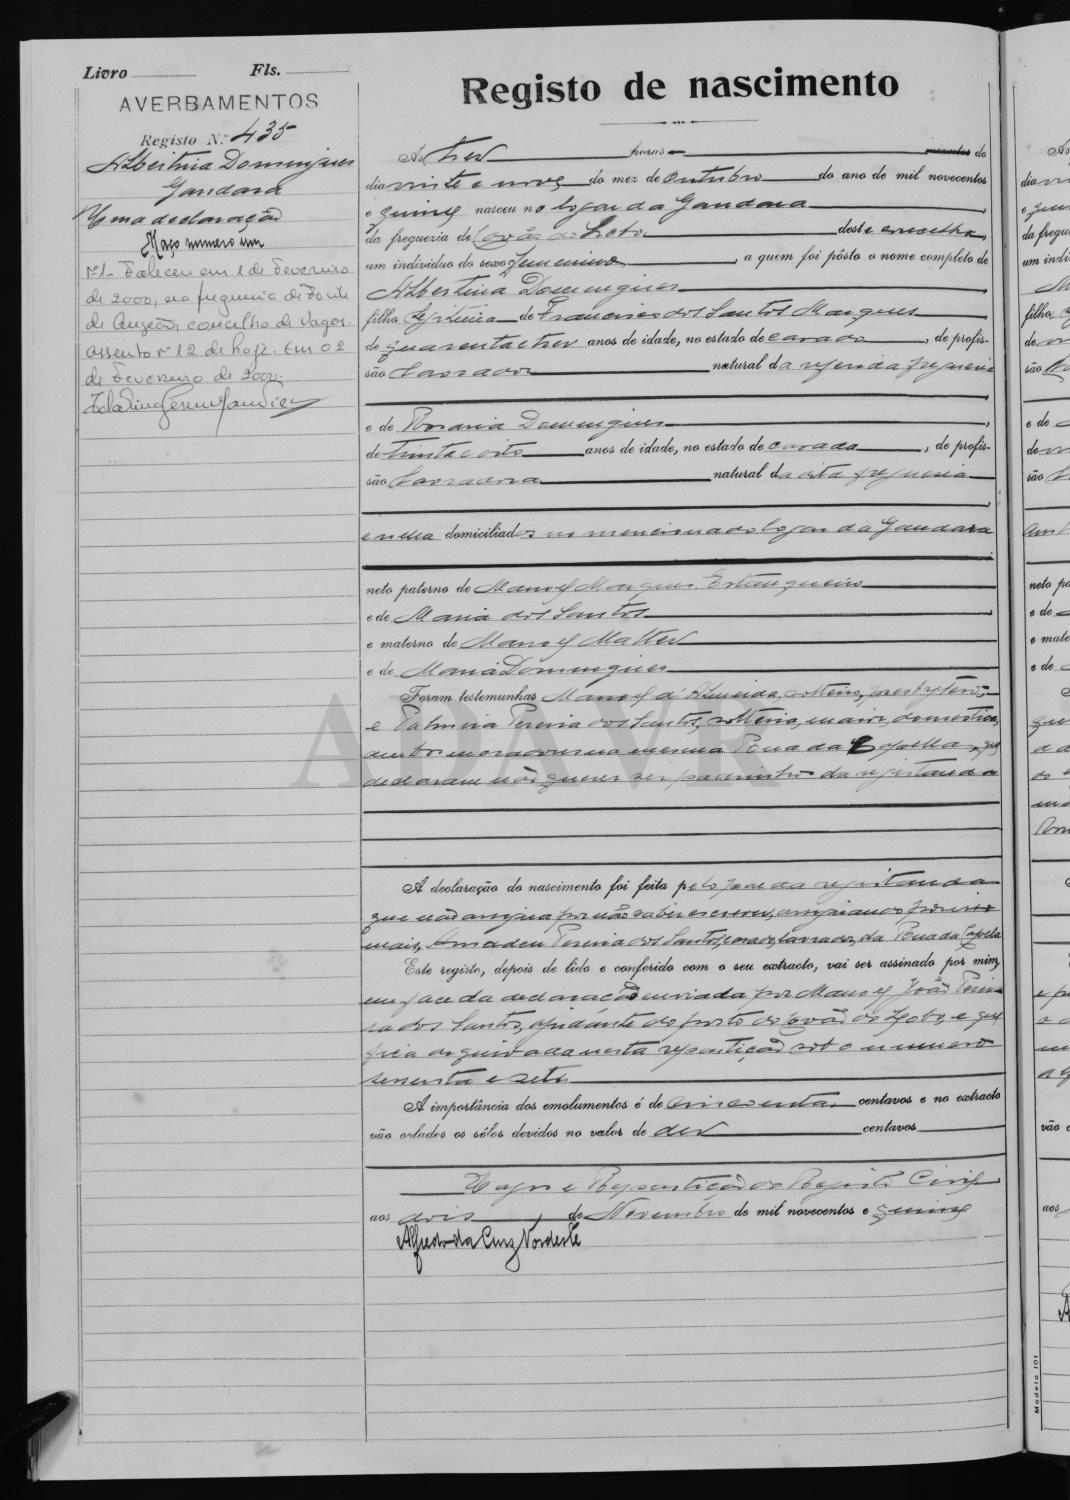 Livro Fls.
AVERBAMENTOS
Registo N.º 435
Albertina Domingues
Gandara
Uma declaração
Maço numero um
Nº1- Faleceu em 1 de Fevereiro
de 2000, na freguesia de Fonte
de Angeão, concelho de Vagos.
Assento nº 12 de hoje. Em 02
de Fevereiro de 2000.
Registo de nascimento
Às tres horas e minutos do
dia vinte e nove do mez de Outubro do ano de mil novecentos
e quinze nasceu no logar da Gandara
da freguezia de Covão do Lobo deste concelho,
um individuo do sexo femenino, a quem foi pôsto o nome completo de
Albertina Domingues
filha legitima de Francisco dos Santos Marques
de quarenta e tres anos de idade, no estado de casado, de profis-
são lavrador natural da referida freguesia
e de Rosaria Domingues
de trinta e oito anos de idade, no estado de casada, de profis-
são lavradora natural da dita freguesia
e nella domiciliados no mencionado logar da Gandara
neto paterno de Manoel Marques Estanqueiro
e de Maria dos Santos
e materno de Manoel Matteus
e de Maria Domingues
Foram testemunhas Manoel d'Almeida, solteiro, presbytero,
e Palmira Pereira dos Santos, solteira, maior, domestica,
ambos moradores na mesma Rua da Capella, que
declaram não querer ser padrinhos da registanda
A declaração do nascimento foi feita pelo pae da registanda
que não assigna por não saber escrever, assignando por
mais, Amadeu Pereira dos Santos, casado, lavrador, da Rua da Capela
Este registo, depois de lido e conferido com o seu extracto, vai ser assinado por mim,
em face da declaração enviada por Manoel João Perei-
ra dos Santos, ajudante do posto do Covão do Lobo, e que
fica arquivada nesta repartição sob o numero
sessenta e sete
A importância dos emolumentos é de cincoenta centavos e no extracto
vão colados os sêlos devidos no valor de dez centavos
Vagos e Repartição do Registo Civil
aos dois de Novembro de mil novecentos e quinze
Alfredo da Cruz Nordeste
AAVR
Modelo 101